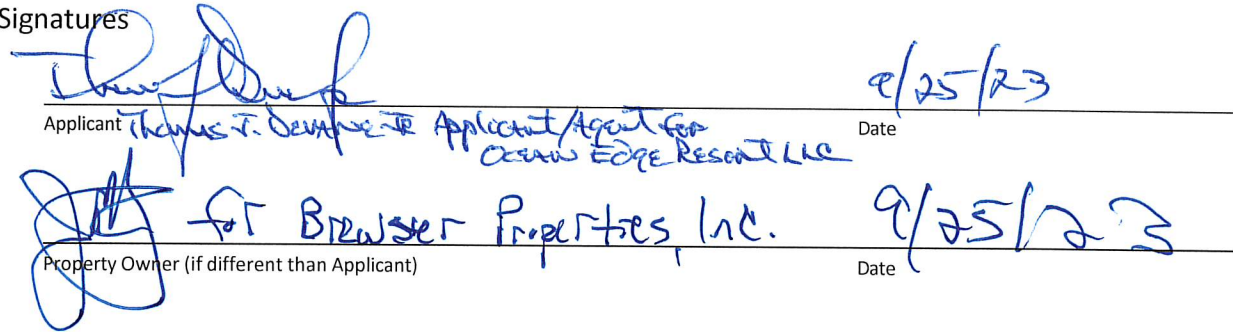 Signatures
9/25/23
Applicant Thomas J. Devane Jr Applicant/Agent for Date
Ocean Edge Resort LLC
for Brewster Properties, Inc. 9/25/23
Property Owner (if different than Applicant) Date